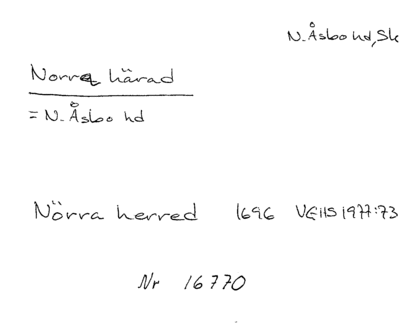 N. Åsbo hd, Sk
Norra härad
= N. Åsbo hd
Nörra herred 1696 VGIIS 1977:73
Nr 16770